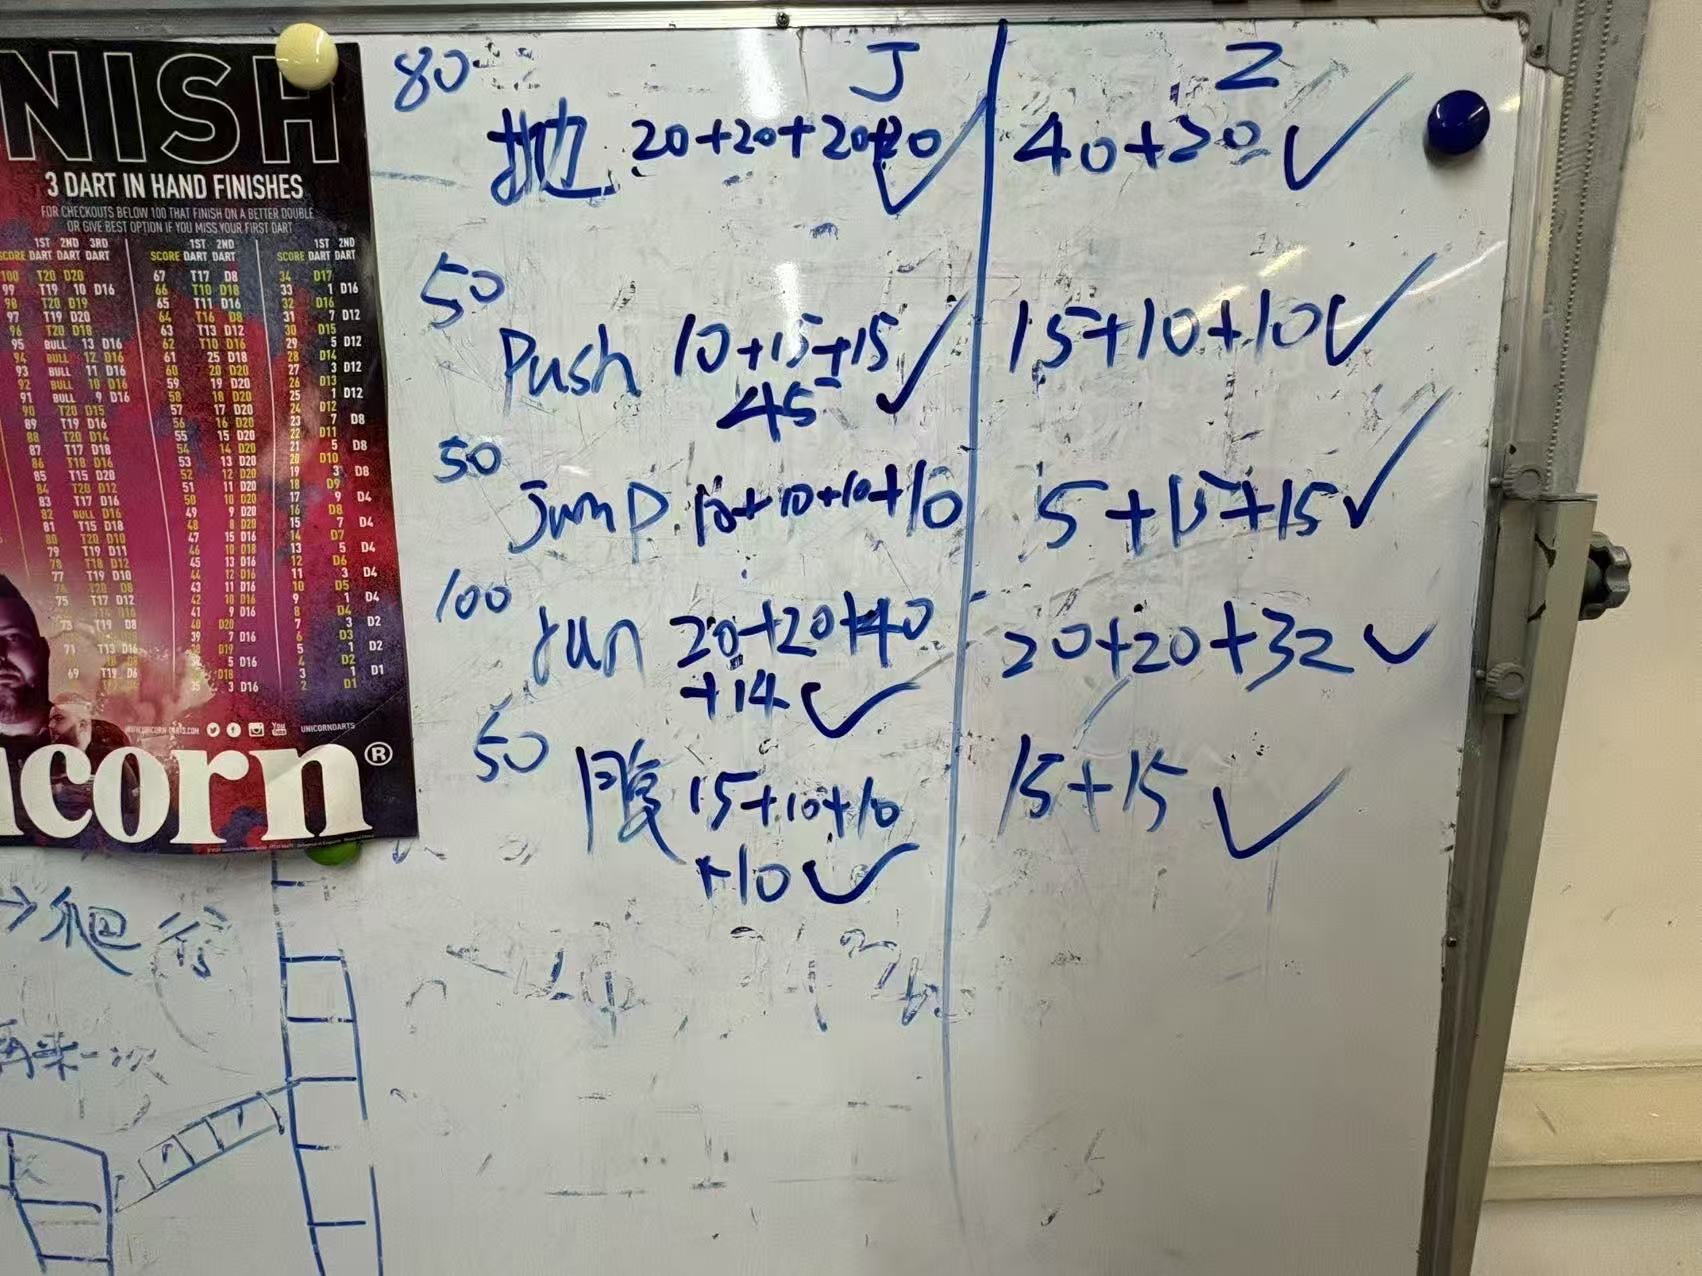 NISH
3 DART IN HAND FINISHES
FOR CHECKOUTS BELOW 100 THAT FINISH ON A BETTER DOUBLE
OR GIVE BEST OPTION IF YOU MISS YOUR FIRST DART
1ST 2ND 3RD
SCORE DART DART DART
100 T20 D20
99 T19 10 D16
98 T20 D19
97 T19 D20
96 T20 D18
95 BULL 13 D16
94 BULL 12 D16
93 BULL 11 D16
92 BULL 10 D16
91 BULL 9 D16
90 T20 D15
89 T19 D16
88 T20 D14
87 T17 D18
86 T18 D16
85 T15 D20
84 T20 D12
83 T17 D16
82 BULL D16
81 T15 D18
80 T20 D10
79 T19 D11
78 T18 D12
77 T19 D10
75 T17 D12
73 T19 D8
71 T13 D16
69 T19 D6
1ST 2ND
SCORE DART DART
67 T17 D8
66 T10 D18
65 T11 D16
64 T16 D8
63 T13 D12
62 T10 D16
61 25 D18
60 20 D20
59 19 D20
58 18 D20
57 17 D20
56 16 D20
55 15 D20
54 14 D20
53 13 D20
52 12 D20
51 11 D20
50 10 D20
49 9 D20
48 8 D20
47 15 D16
46 10 D18
45 13 D16
44 12 D16
43 11 D16
42 10 D16
41 9 D16
40 D20
39 7 D16
38 D19
5 D16
D18
35 3 D16
1ST 2ND
SCORE DART DART
34 D17
33 1 D16
32 D16
31 7 D12
30 D15
29 5 D12
28 D14
27 3 D12
26 D13
25 1 D12
24 D12
23 7 D8
22 D11
21 5 D8
20 D10
19 3 D8
18 D9
17 9 D4
16 D8
15 7 D4
14 D7
13 5 D4
12 D6
11 3 D4
10 D5
9 1 D4
8 D4
7 3 D2
6 D3
5 1 D2
4 D2
3 1 D1
2 D1
UNICORNDARTS
corn®
J Z
80
地 20+20+20+20 ✓ 40+30 ✓
50
Push 10+15+15 ✓ 15+10+10 ✓
45
50
Jump 10+10+10+10 15+15+15 ✓
100
run 20+20+40 20+20+32 ✓
+14 ✓
50
腹 15+10+10 15+15 ✓
+10 ✓
→爬行
再来一次